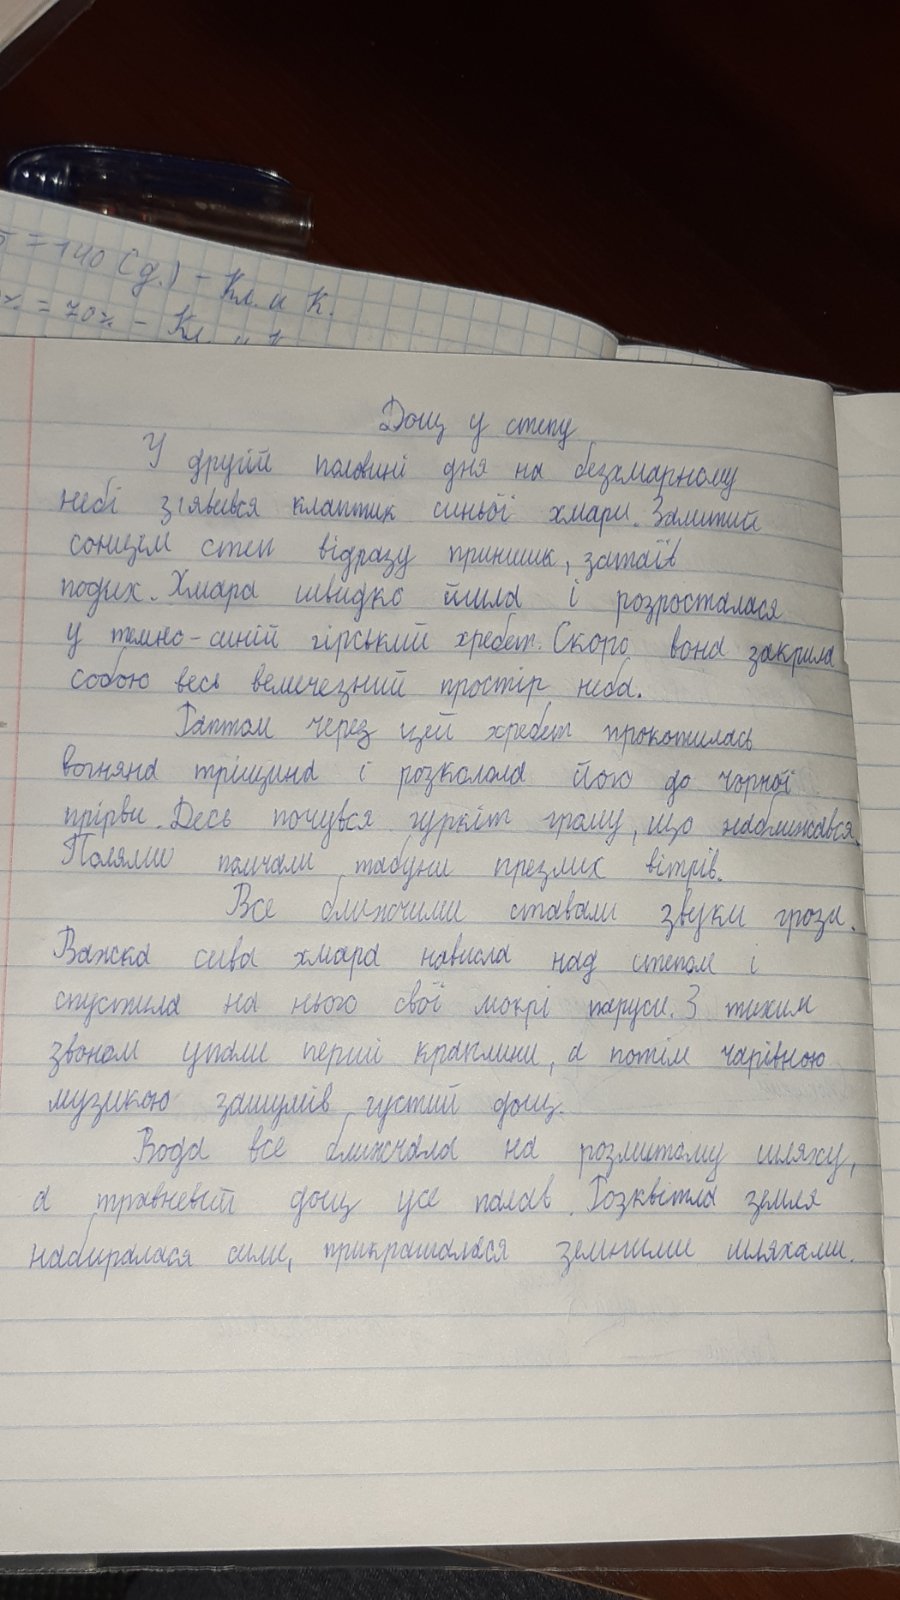 = 140 (д.) - Кл. и К.
% = 70% - Кл. и К
Дощ у степу
У другій половині дня на безхмарному
небі з'явився клаптик синьої хмари. Залитий
сонцем степ відразу принишк, затаїв
подих. Хмара швидко йшла і розросталася
у темно-синій гірський хребет. Скоро вона закрила
собою весь величезний простір неба.
Раптом через цей хребет прокотилась
вогняна тріщина і розколола його до чорної
прірви. Десь почувся гуркіт грому, що наближався.
Полями помчали табуни презлих вітрів.
Все ближчими ставали звуки грози.
Важка сива хмара нависла над степом і
спустила на нього свої мокрі паруси. З тихим
звоном упали перий краплини, а потім чарівною
музикою зашумів густий дощ.
Вода все ближчала на розмитому шляху,
а травневій дощ усе полав. Розквітла земля
набиралася сили, прикрашалася земними шляхами.